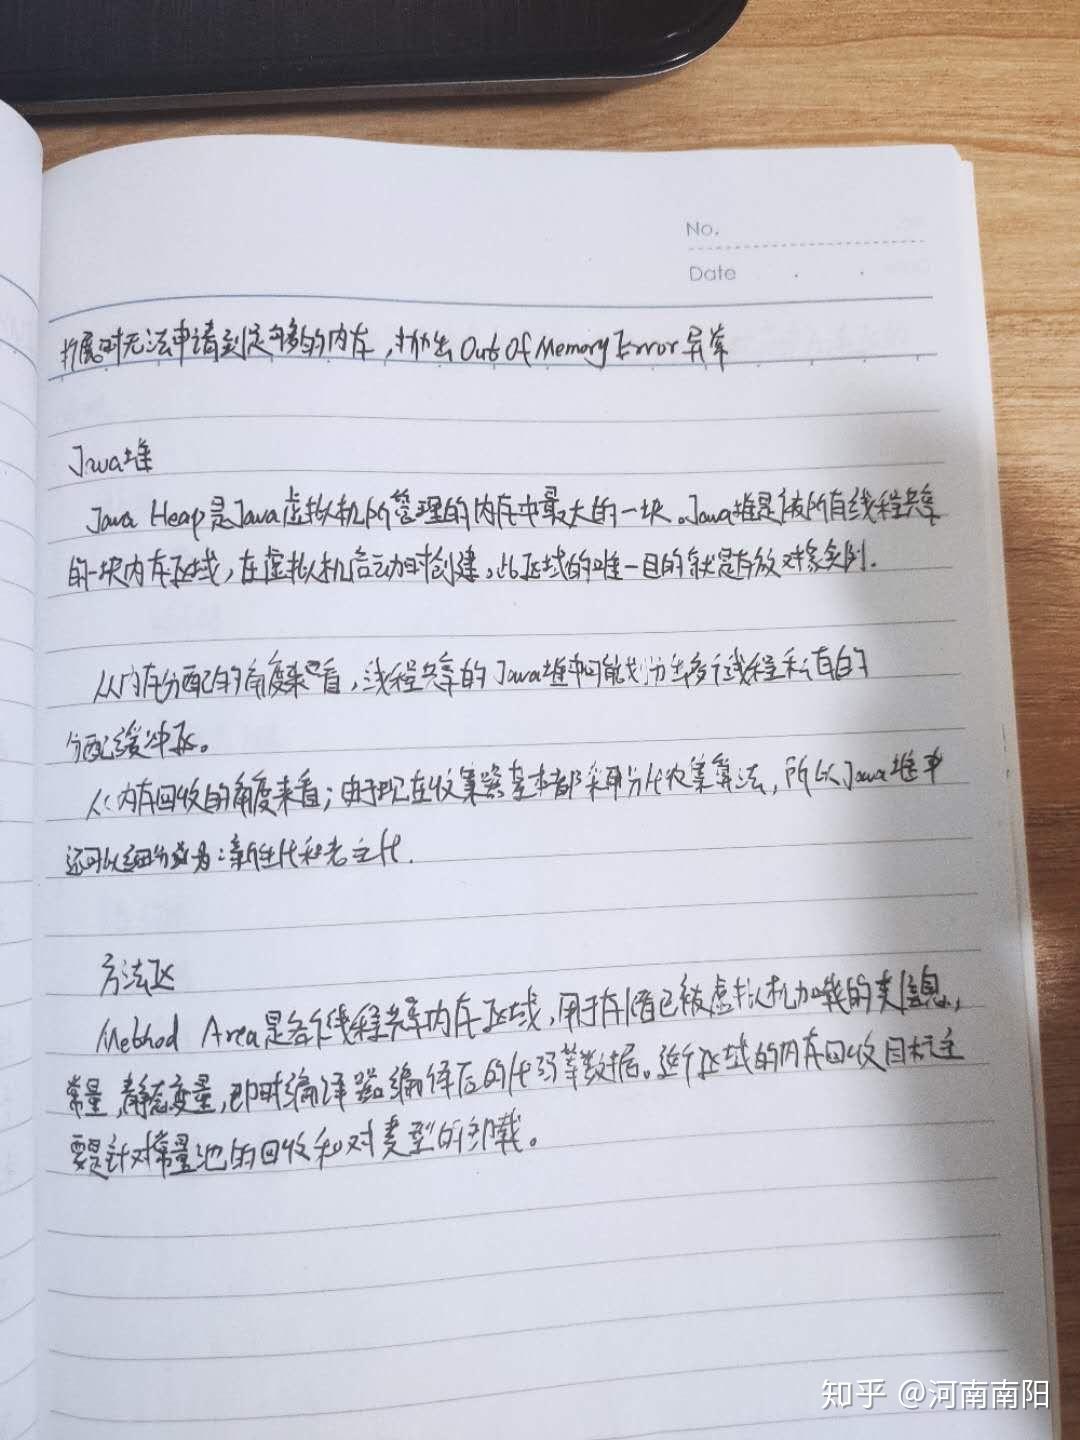 No.
Date
扩展时无法申请到足够多的内存，抛出OutOfMemoryError异常
Java堆
Java Heap是Java虚拟机所管理的内存中最大的一块。Java堆是被所有线程共享
的一块内存区域，在虚拟机启动时创建。此区域的唯一目的就是存放对象实例.
从内存分配的角度来看，线程共享的Java堆中可能划分出多个线程私有的
分配缓冲区。
从内存回收的角度来看；由于现在收集器基本都采用分代收集算法，所以Java堆中
还可以细分为：新生代和老生代.
方法区
Method Area是各个线程共享内存区域，用于存储已被虚拟机加载的类信息，
常量，静态变量，即时编译器编译后的代码等数据。这个区域的内存回收目标主
要是针对常量池的回收和对类型的卸载。
知乎 @河南南阳